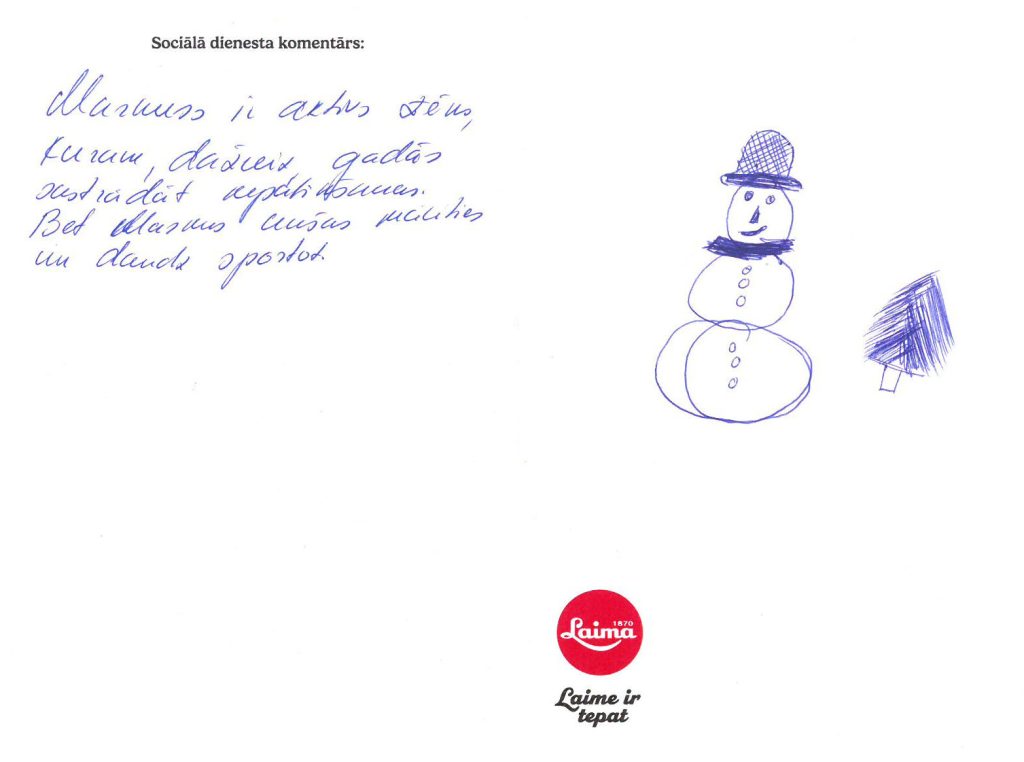 Sociālā dienesta komentārs:
ir aktīvs zēns,
kuram, dažreiz, gadās
sastrādāt nepatikšanas.
Bet cenšas mācīties
un daudz sportot.
Laima
1870
Laime ir
tepat